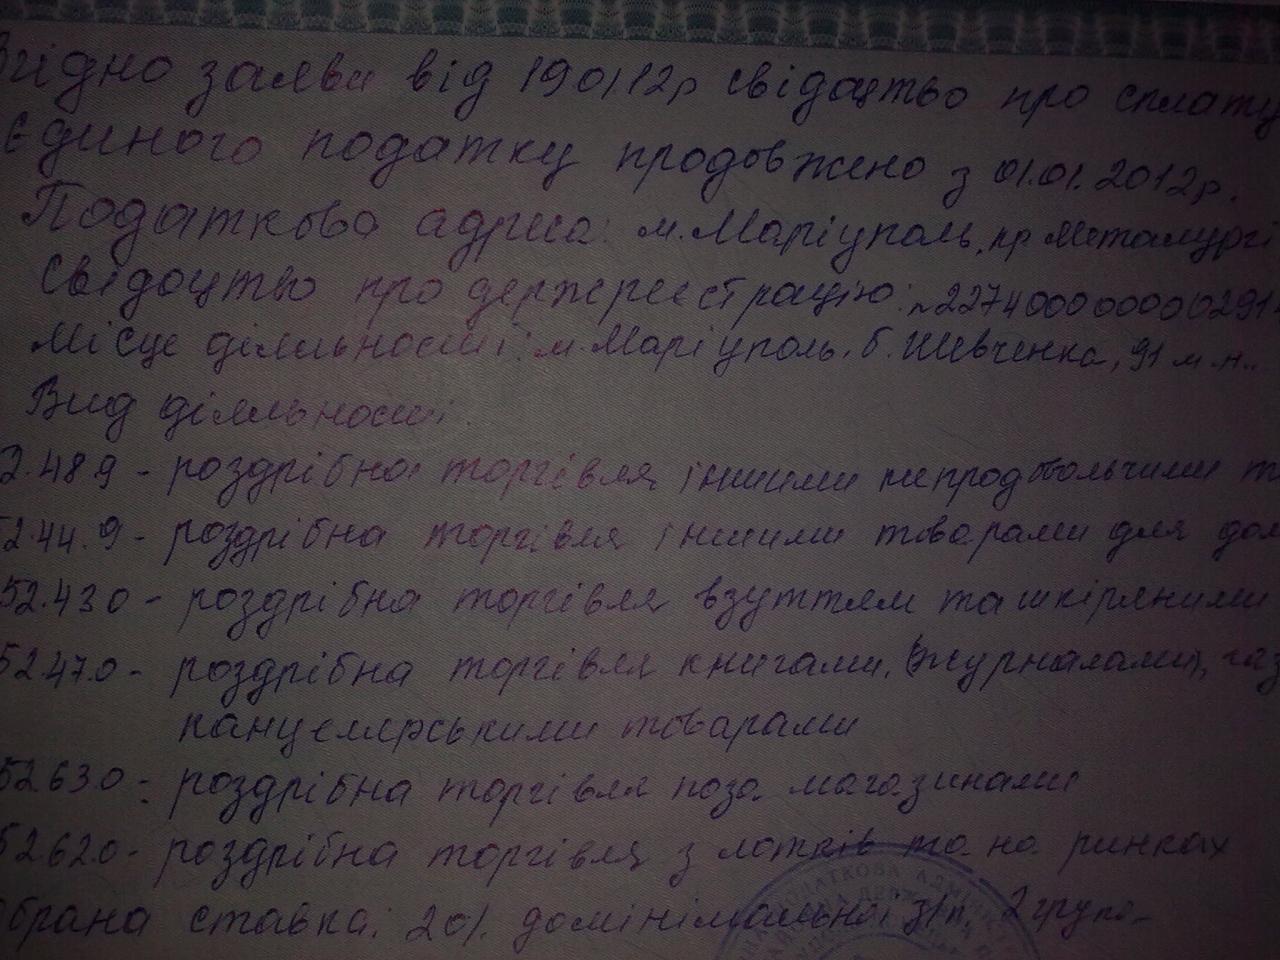 згідно заяви від 190112р свідоцтво про сплату
єдиного податку продовжено з 01.01.2012р.
Податкова адреса: м.Маріуполь, пр Металургі
Свідоцтво про держреєстрацію: 2274000000000291
Місце діяльності: м.Маріуполь, б.Шевченка, 91 м.н..
Вид діяльності:
2.48.9 - роздрібна торгівля іншими непродовольчими т
52.44.9 - роздрібна торгівля іншими товарами для дом
52.43.0 - роздрібна торгівля взуттям та шкіряними
52.47.0 - роздрібна торгівля книгами, (журналами), газ
канцелярськими товарами
52.63.0 - роздрібна торгівля поза магазинами
52.62.0 - роздрібна торгівля з лотків та на ринках
обрана ставка: 20% до мінімальної з/п, 2 група
ПОДАТКОВА АДМІН